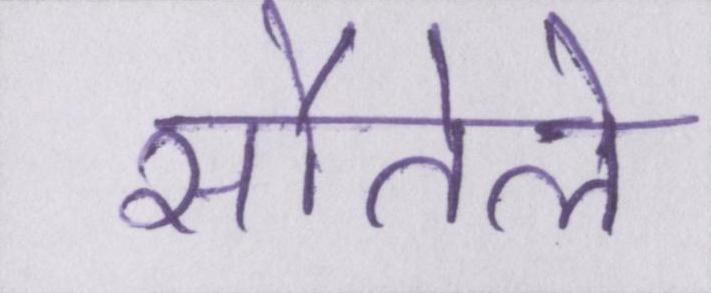 सौतेले